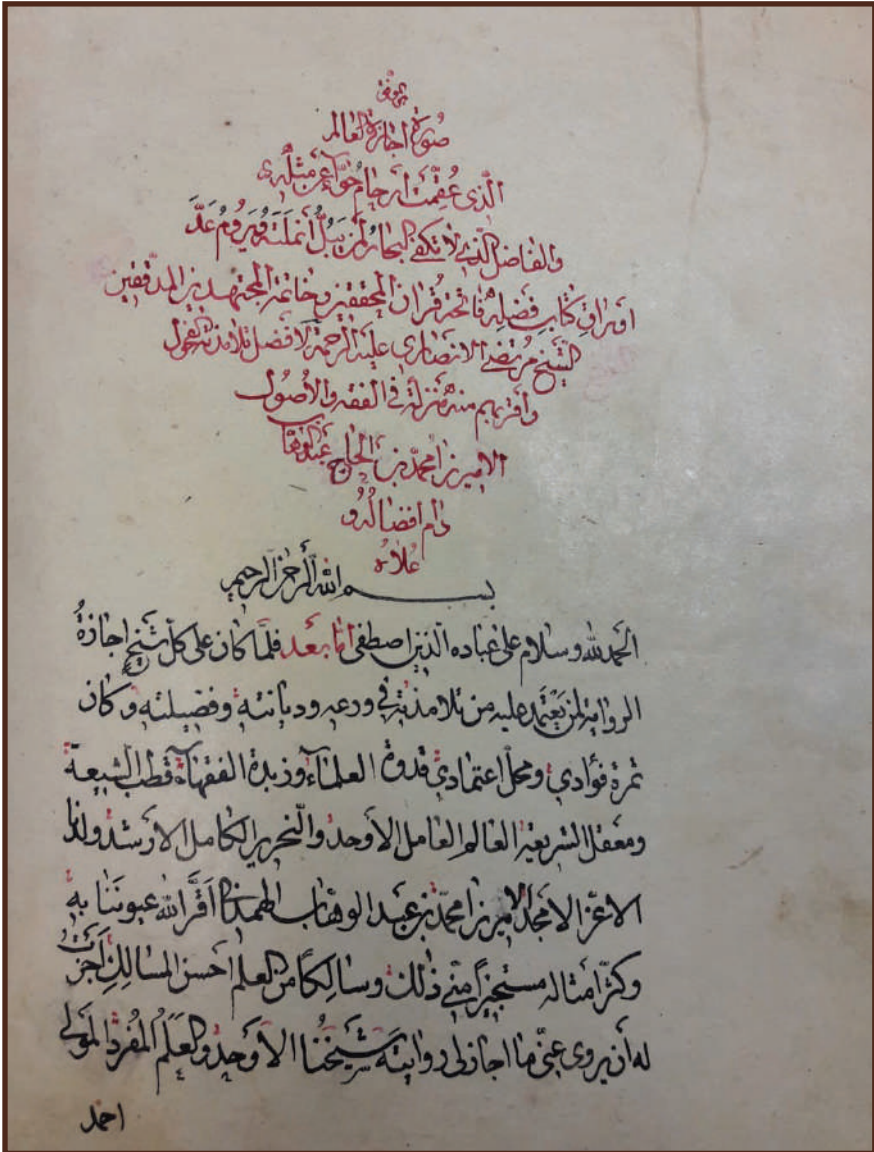 صورة اجازة العالم
الذي عقمت ارحام حوّا عن مثله
والفاضل الذي لا تكفي البحار لمن يبلّ أنملته ويروم عدّ
اوراق كتاب فضله فاتحة قرآن المحققين وخاتمة المجتهدين المدققين
الشيخ مرتضى الانصاري عليه الرحمة لافضل تلامذته الفحول
وأقربهم منه منزلة في الفقه والأصول
الاميرزا محمد بن الحاج عبد الوهاب
دام افضاله و
علاه
بسم الله الرحمن الرحيم
الحمد لله وسلام على عباده الذين اصطفى امّا بعد فلمّا كان على كل شيخ اجازة
الرواية لمن يعتمد عليه من تلامذته في ورعه وديانته وفضيلته وكان
ثمرة فؤادي ومحل اعتمادي قدوة العلماء وزبدة الفقهاء قطب الشيعة
ومعقل الشريعة العالم العامل الأوحد والنحرير الكامل الارشد ولدنا
الاعز الامجد الاميرزا محمد بن عبد الوهاب الهمداني اقرّ الله عيوننا به
وكثر امثاله مستجيزاً منّي ذلك وسالكاً من العلم احسن المسالك أجزت
له أن يروي عنّي ما اجاز لي روايته شيخنا الأوحد والعلم المفرد المولى
احمد